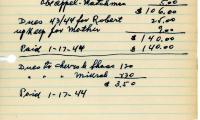 Chappel-Watchman 5.00
$106.00
Dues 43/44 for Robert 25.00
upkeep for Mother 9.00
$140.00
Paid 1-17-44 $140.00
Dues to Chevra & Shass 1.20
" " " Midrash
$3.50
Paid 1-17-44